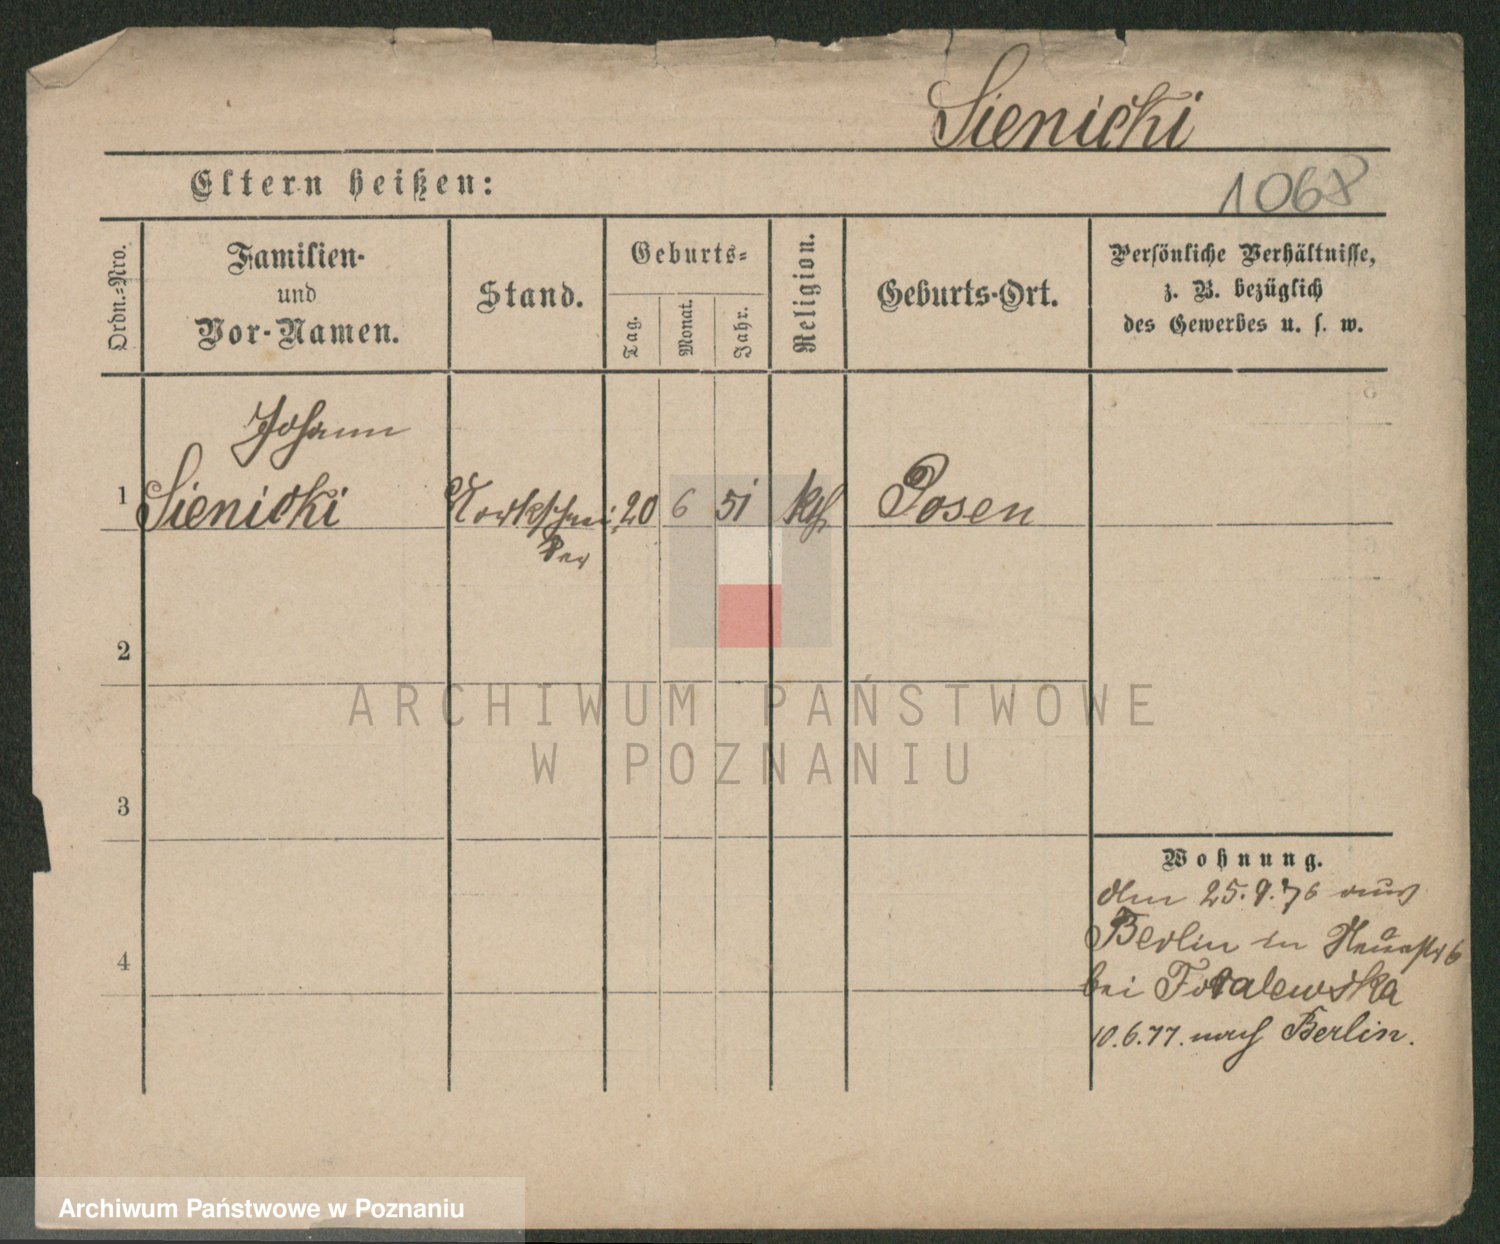 Sienicki
Eltern heißen:
1068
Ordn.-Nro.
Familien-
und
Vor-Namen.
Stand.
Geburts-
Tag.
Monat.
Jahr.
Religion.
Geburts-Ort.
Persönliche Verhältnisse,
z. B. bezüglich
des Gewerbes u. s. w.
Johann
1 Sienicki Korkschnei 20 6 51 kth Posen
der
2
3
4
Wohnung.
den 25.9.76 aus
Berlin in 6
bei
10.6.77. nach Berlin.
ARCHIWUM PAŃSTWOWE
W POZNANIU
Archiwum Państwowe w Poznaniu